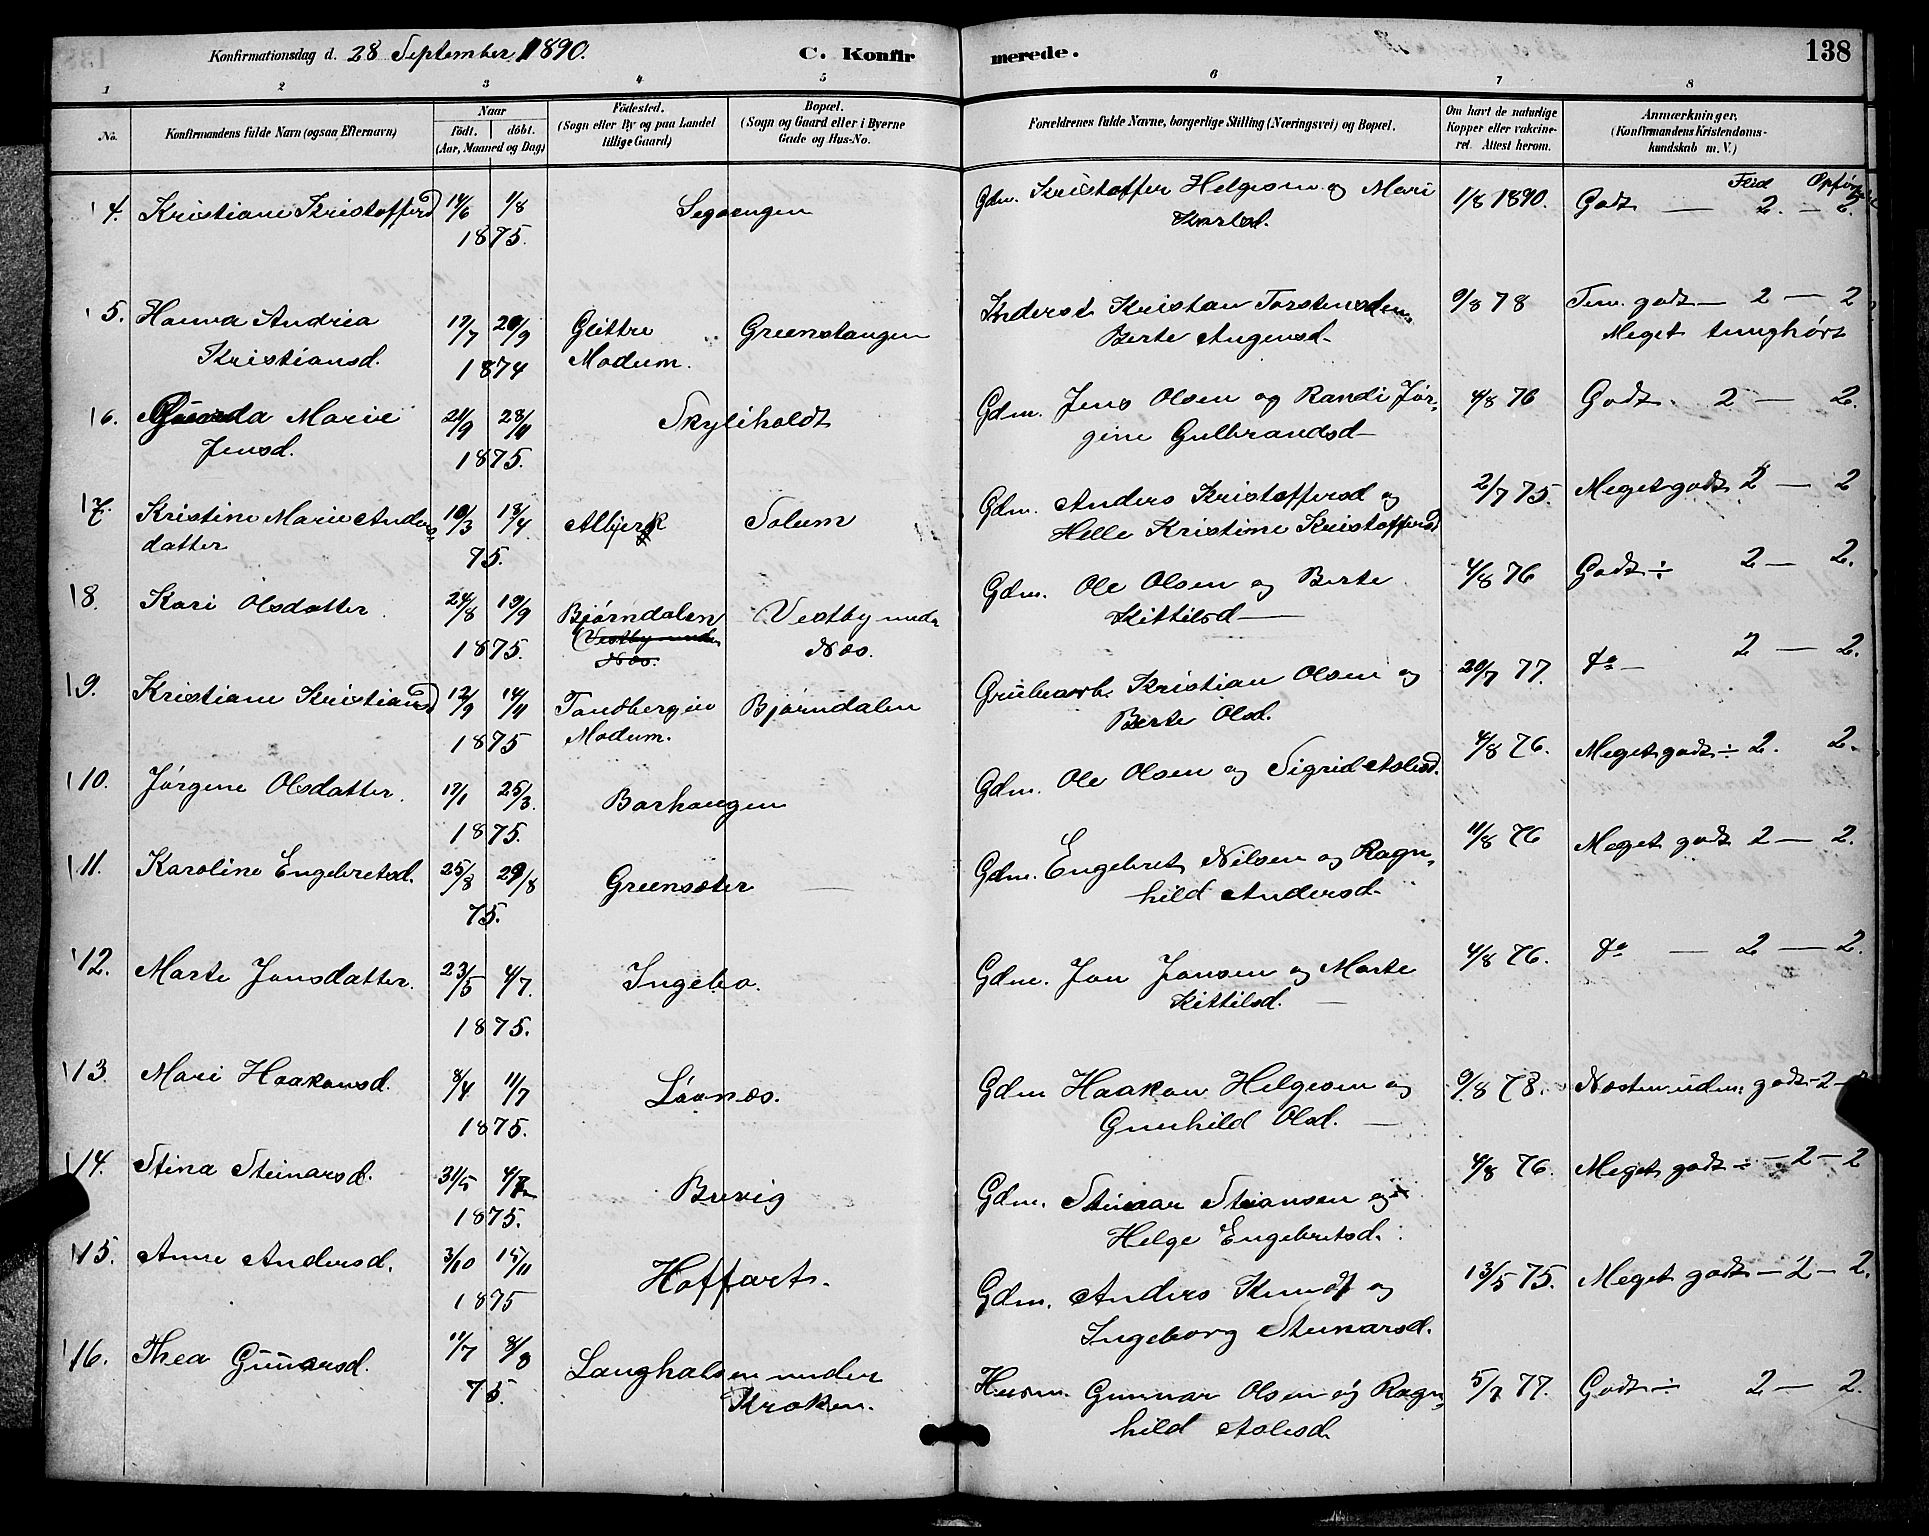 Konfirmationsdag d. 28 September 1890. C. Konfirmerede. 138
1 2 3 4 5 6 7 8
No. Konfirmandens fulde Navn (ogsaa Efternavn) Naar födt. döbt. (Aar, Maaned og Dag) Födested. (Sogn eller By og paa Landet tillige Gaard) Bopæl. (Sogn og Gaard eller i Byerne Gade og Hus-No. Forældrenes fulde Navne, borgerlige Stilling (Næringsvei) og Bopæl. Om havt de naturlige Kopper eller vakcineret. Attest herom. Anmærkninger. (Konfirmandens Kristendomskundskab m. V.)
Flid
4. Kristiane Kristofferd 14/6 1/8 Gdm. Kristoffer Helgesen og Mari 1/8 1890. Godt — 2. — 2.
1875.
5. Hanna Andrea 17/7 20/9 Güttre Greenstangen Inderst Kristian Torstensen 9/8 78 Tem. godt — 2 — 2
Kristiansd. 1874 Modum. Berte Meget tunghørt
6. Marie 21/9 28/11 Skyliholdt Gdm. Jens Olsen og Randi Jør- 4/8 76 Godt. 2 — 2.
Jensd. 1875. gine Gulbrandsd
7. Kristine Marie Anders 10/3 18/4 Albjerk Solum Gdm. Anders Kristoffersd og 2/7 75. Meget godt 2 — 2
datter 75. Helle Kristine Kristoffersd
8. Kari Olsdatter. 24/8 19/9 Bjørndalen Vestby under Gdm. Ole Olsen og Berte 4/8 76 Godt ÷ 2 — 2.
1875. Vestby under Næs. Næs. Kittilsd —
9. Kristiane Kristiansd 12/9 14/11 Tandberg Bjørndalen Grubearb. Kristian Olsen og 20/7 77. do — 2 — 2.
1875 Modum. Berte Olsd.
10. Jørgine Olsdatter. 17/1 25/3. Barhaugen Gdm. Ole Olsen og Sigrid Aslesd. 4/8 76. Meget godt ÷ 2. 2.
1875.
11. Karoline Engebretsd. 25/8 29/8 Greensæter — Gdm. Engebret Nilsen og Ragn- 11/8 76 Meget godt 2 — 2.
75. hild Andersd.
12. Marte Jonsdatter. 23/5 4/7. Ingebo. Gdm. Jon Jonsen og Marte 4/8 76. do — 2 — 2.
1875. Kittilsd. —
13. Mari Haakonsd. 8/4 11/7 Løvnæs. Gdm Haakon Helgesen og 9/8 78. Næsten udm. godt - 2 -
1875. Gunhild Olsd. —
14. Stina Steinarsd. 31/5 Buvig Gdm. Steinar Steinarsen og 4/8 76. Meget godt ÷ - 2 - 2
1875. Helge Engebretsd.
15. Anne Andersd. 3/10 15/11 Hoffart. Gdm. Anders og 13/5 75. Meget godt — 2 — 2.
1875 Ingeborg Steinarsd.
16. Thea Gunarsd. 11/7 8/8 Langhalsen under Husm. Gunnar Olsen og Ragn- 5/7 77. Godt ÷ 2 — 2.
75. Kroken. hild Aslesd.